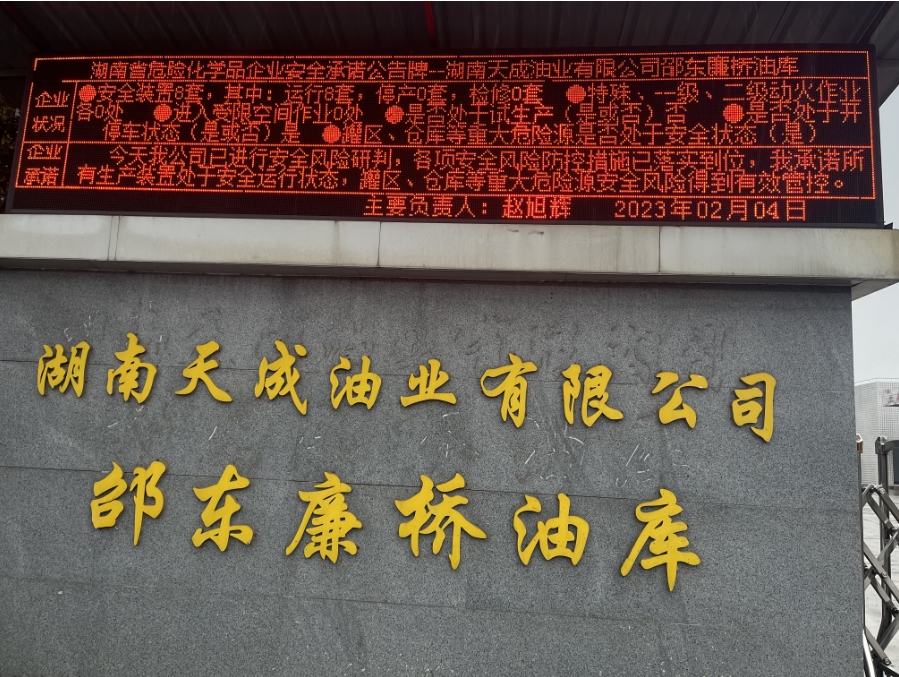 湖南省危险化学品企业安全承诺公告牌—湖南天成油业有限公司邵东廉桥油库
企业状况
●安全装置8套，其中：运行8套，停产0套，检修0套 ●特殊、一级、二级动火作业
各0处 ●进入受限空间作业0处 ●是否处于试生产（是或否）否 ●是否处于开
停车状态（是或否）是 ●罐区、仓库等重大危险源是否处于安全状态（是）
企业承诺
今天我公司已进行安全风险研判，各项安全风险防控措施已落实到位，我承诺所
有生产装置处于安全运行状态，罐区、仓库等重大危险源安全风险得到有效管控。
主要负责人：赵旭辉 2023年02月04日
湖南天成油业有限公司
邵东廉桥油库